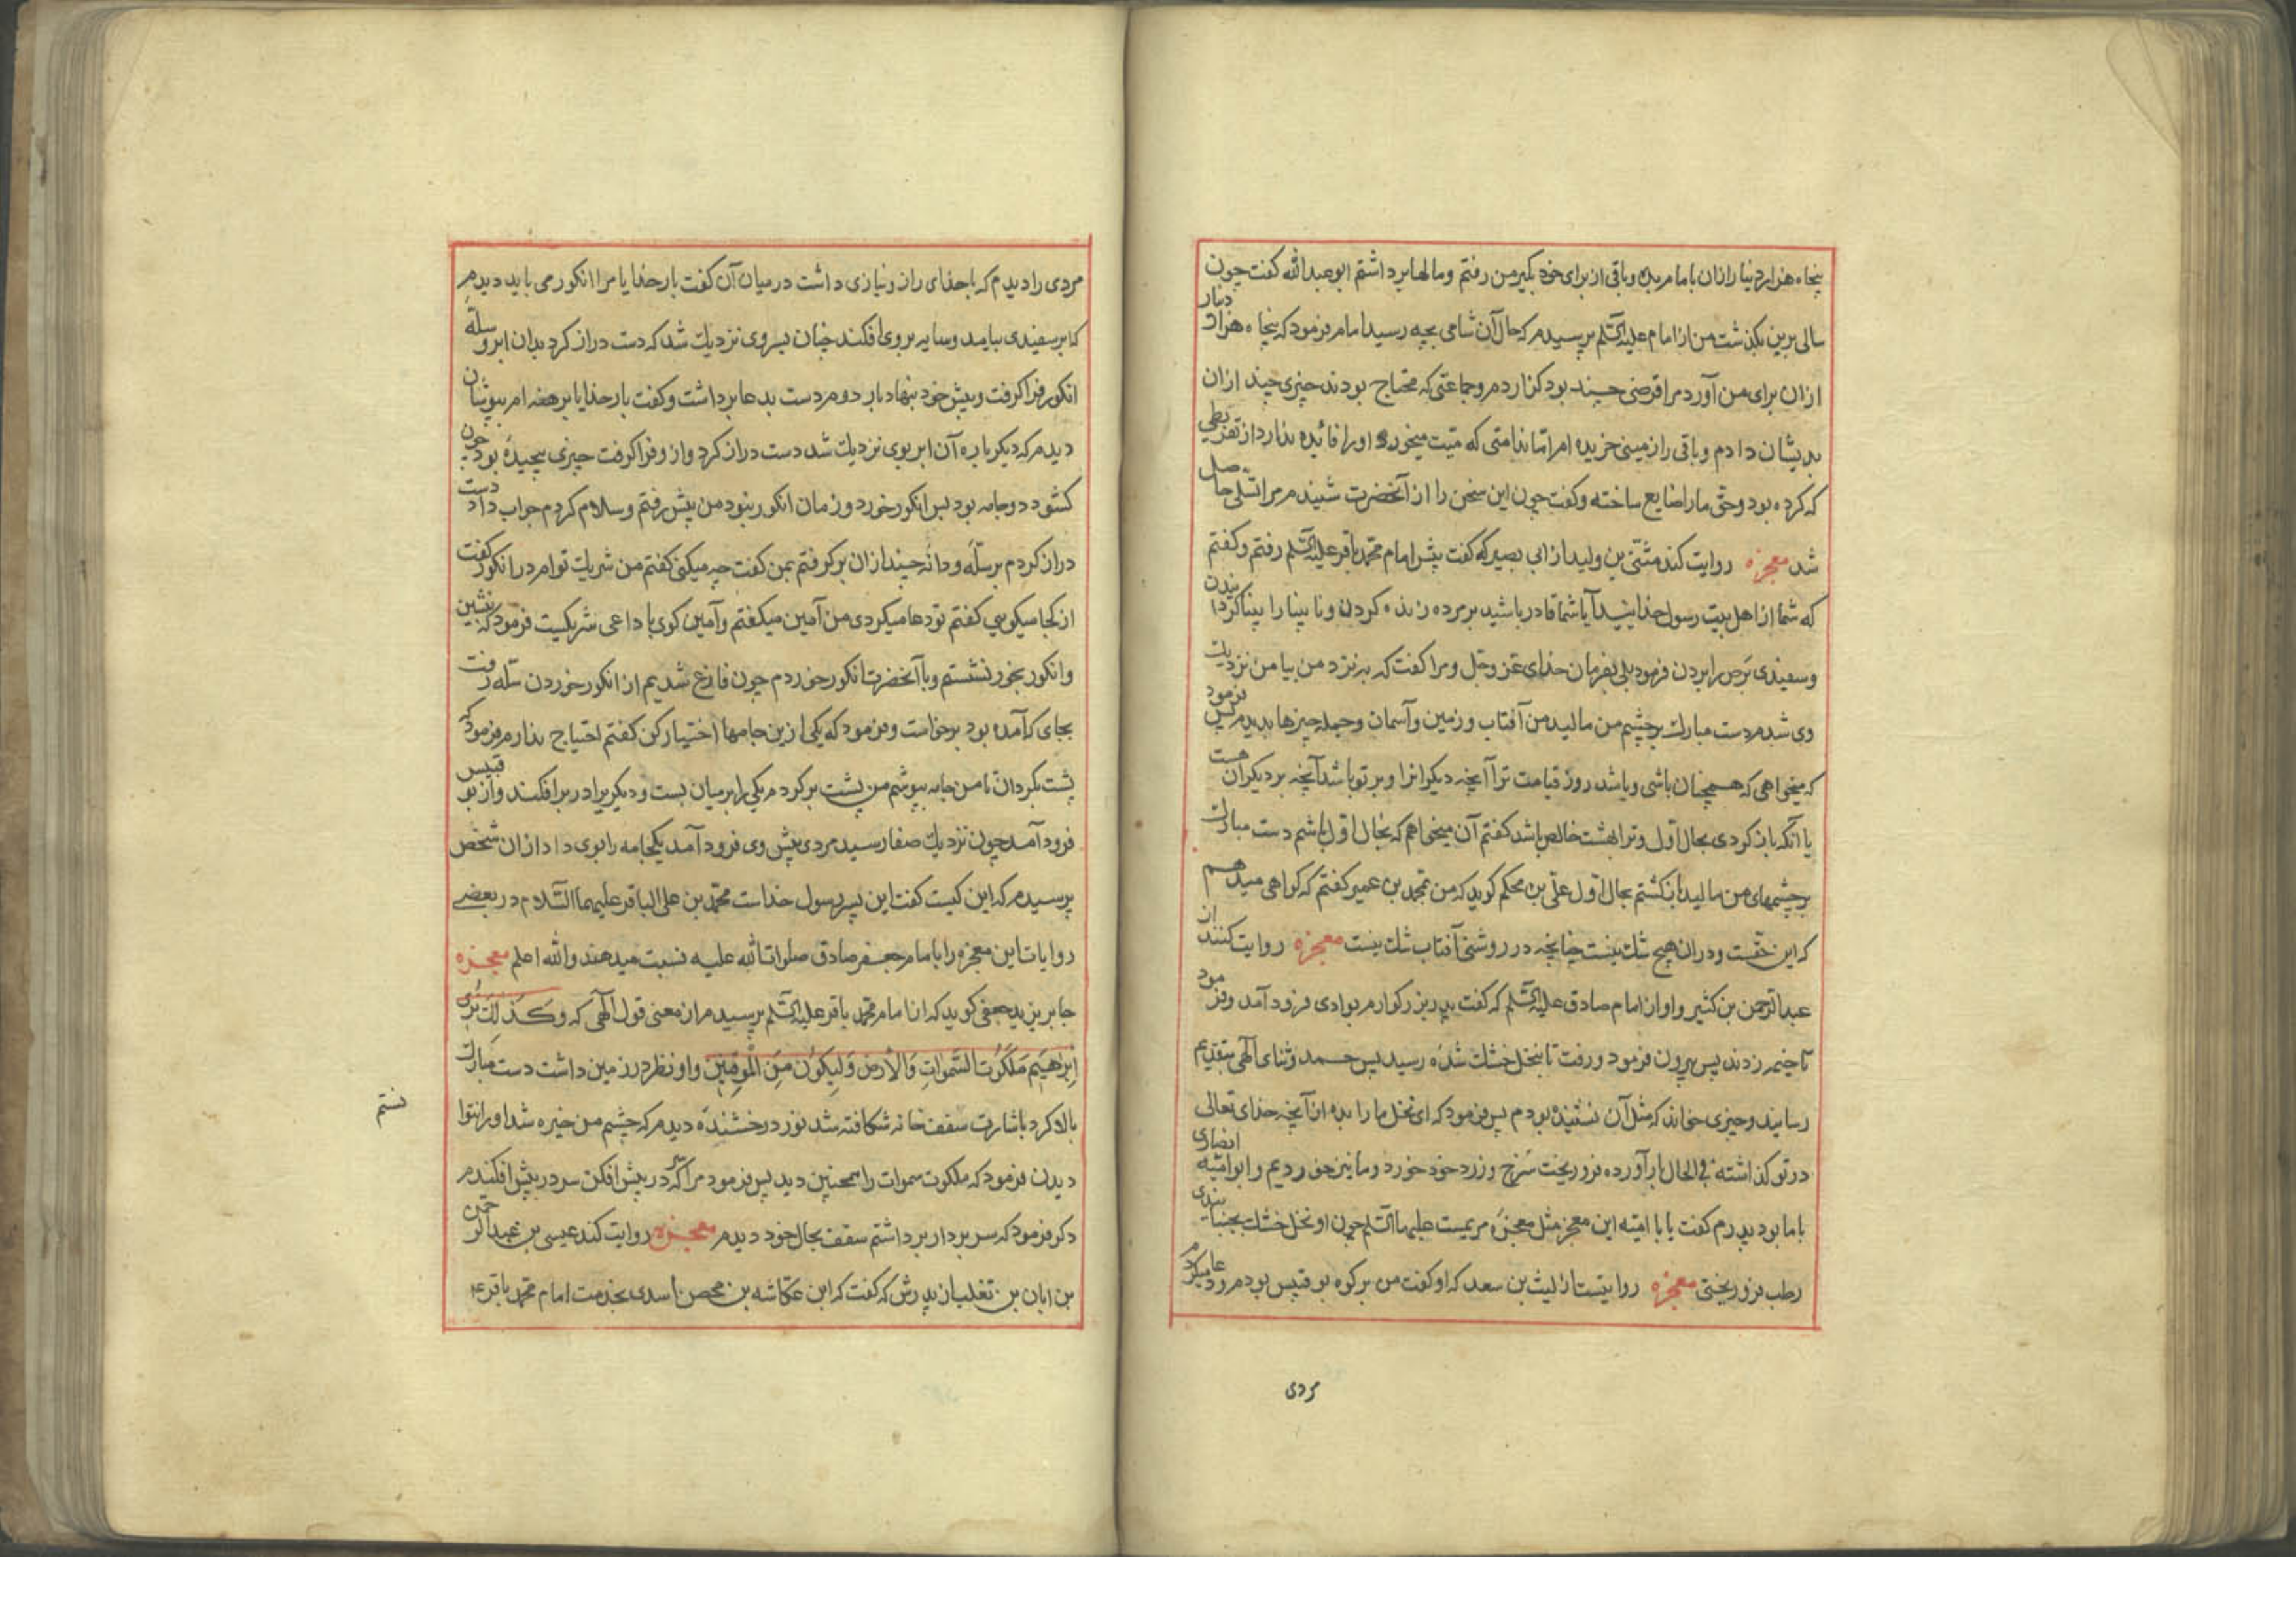 پنجاه هزار دینار ازان بامام بده و باقی از برای خود بگیر من رفتم و مالها برداشتم ابو عبدالله گفت چون
سالی برین بگذشت من از امام علیه السلم پرسیدم که حال آن شامی بچه رسید امام فرمود که پنجاه هزار دینار
ازان برای من آورد مرا قرضی چند بود گزاردم و جماعتی که محتاج بودند چیزی چند ازان
بدیشان دادم و باقی را زمینی خریده ام اما ندامتی که میت میخورد او را فائده ندارد از تفریطی
که کرده بود و حق ما را ضایع ساخته و گفت چون این سخن را از آنحضرت شنیدم مرا تسلی حاصل
شد معجزه روایت کند مثنی بن ولید از ابی بصیر که گفت پیش امام محمد باقر علیه السلم رفتم و گفتم
که شما از اهل بیت رسول خدایید آیا شما قادر باشید بر مرده زنده کردن و نابینا را بینا گردانیدن
و سفیدی برص را بردن فرمود بلی بفرمان خدای عز و جل و مرا گفت که بنزد من بیا من نزدیک
وی شدم دست مبارک بر چشم من مالید من آفتاب و زمین و آسمان و جمله چیزها بدیدم پس فرمود
که میخواهی که همچنان باشی و باشد روز قیامت ترا آنچه دیگرانرا و بر تو باشد آنچه بر دیگران هست
یا آنکه باز گردی بحال اول و ترا بهشت خالص باشد گفتم آن میخواهم که بحال اول باشم دست مبارک
بر چشمهای من مالید باز گشتم بحال اول علی بن محکم گوید که من بمحمد بن عمیر گفتم که گواهی میدهم
که این حقست و دران هیچ شک نیست چنانچه در روشنی آفتاب شک نیست معجزه روایت کنند از
عبدالرحمن بن کثیر و او از امام صادق علیه السلم که گفت پدر بزرگوارم بوادی فرود آمد و فرمود
تا خیمه زدند پس بیرون فرمود و رفت تا بنخل خشک شده رسید پس حمد و ثنای الهی بتقدیم
رسانید و چیزی خواند که مثل آن نشنیده بودم پس فرمود که ای نخل ما را بده از آنچه خدای تعالی
در تو گذاشته فی الحال بار آورده فرو ریخت سرخ و زرد خود خورد و ما نیز خوردیم و ابو امیه انصاری
با ما بود پدرم گفت یا با امیه این معجز مثل معجزه مریمست علیها السلم چون او نخل خشک بجنبانیدی
رطب فرو ریختی معجزه روایتست از لیث بن سعد که او گفت من بر کوه بو قبیس بودم و دعا میکردم
مردی
مردی را دیدم که با خدای راز و نیازی داشت در میان آن گفت بار خدایا مرا انگور می باید دیدم
که ابر سفیدی بیامد و سایه بر وی افکند چنان بروی نزدیک شد که دست دراز کرد بدان ابر و سله
انگور فرا گرفت و پیش خود بنهاد بار دوم دست بدعا برداشت و گفت بار خدایا برهنه ام بپوشان
دیدم که دیگر باره آن ابر بوی نزدیک شد دست دراز کرد و ازو فرا گرفت چیزی پیچیده بود چون
گشود دو جامه بود پس انگور خورد و زمان انگور نبود من پیش رفتم و سلام کردم جواب داد دست
دراز کردم بر سله و دانه چند ازان بر گرفتم بمن گفت چه میکنی گفتم من شریک توام در انگور گفت
از کجا میگویی گفتم تو دعا میکردی من آمین میگفتم و آمین گوی با داعی شریکست فرمود که بنشین
و انگور بخور نشستم و با آنحضرت انگور خوردم چون فارغ شدیم از انگور خوردن سله رفت
بجای که آمده بود برخاست و فرمود که یکی ازین جامها اختیار کن گفتم احتیاج ندارم فرمود که
پشت بگردان تا من جامه بپوشم من پشت بر کردم یکی را بر میان بست و دیگری را در بر افکند و از بو قبیس
فرود آمد چون نزدیک صفا رسید مردی پیش وی فرود آمد یکجامه را بوی داد ازان شخص
پرسیدم که این کیست گفت این پسر رسول خداست محمد بن علی الباقر علیهما السلام در بعضی
روایات این معجزه را بامام جعفر صادق صلوات الله علیه نسبت میدهند والله اعلم معجزه
جابر یزید جعفی گوید که از امام محمد باقر علیه السلم پرسیدم از معنی قول الهی که وَكَذلِكَ نُرِى
اِبْرٰهِيمَ مَلَكُوتَ السَّمٰوٰاتِ وَالْأَرْضِ وَلِيَكُونَ مِنَ الْمُوقِنِينَ و او نظر در زمین داشت دست مبارک
بالا کرد باشارت سقف خانه شکافته شد نور درخشنده دیدم که چشم من خیره شد او را نتوا
نستم
دیدن فرمود که ملکوت سموات را همچنین دید پس فرمود مرا که سر در پیش افکن سر در پیش افکندم
دگر فرمود که سر بردار برداشتم سقف بحال خود دیدم معجزه روایت کند عیسی بن عبدالرحمن
بن ابان بن تغلب از پدرش که گفت که ابن عکاشه بن محصن اسدی بخدمت امام محمد باقر ع